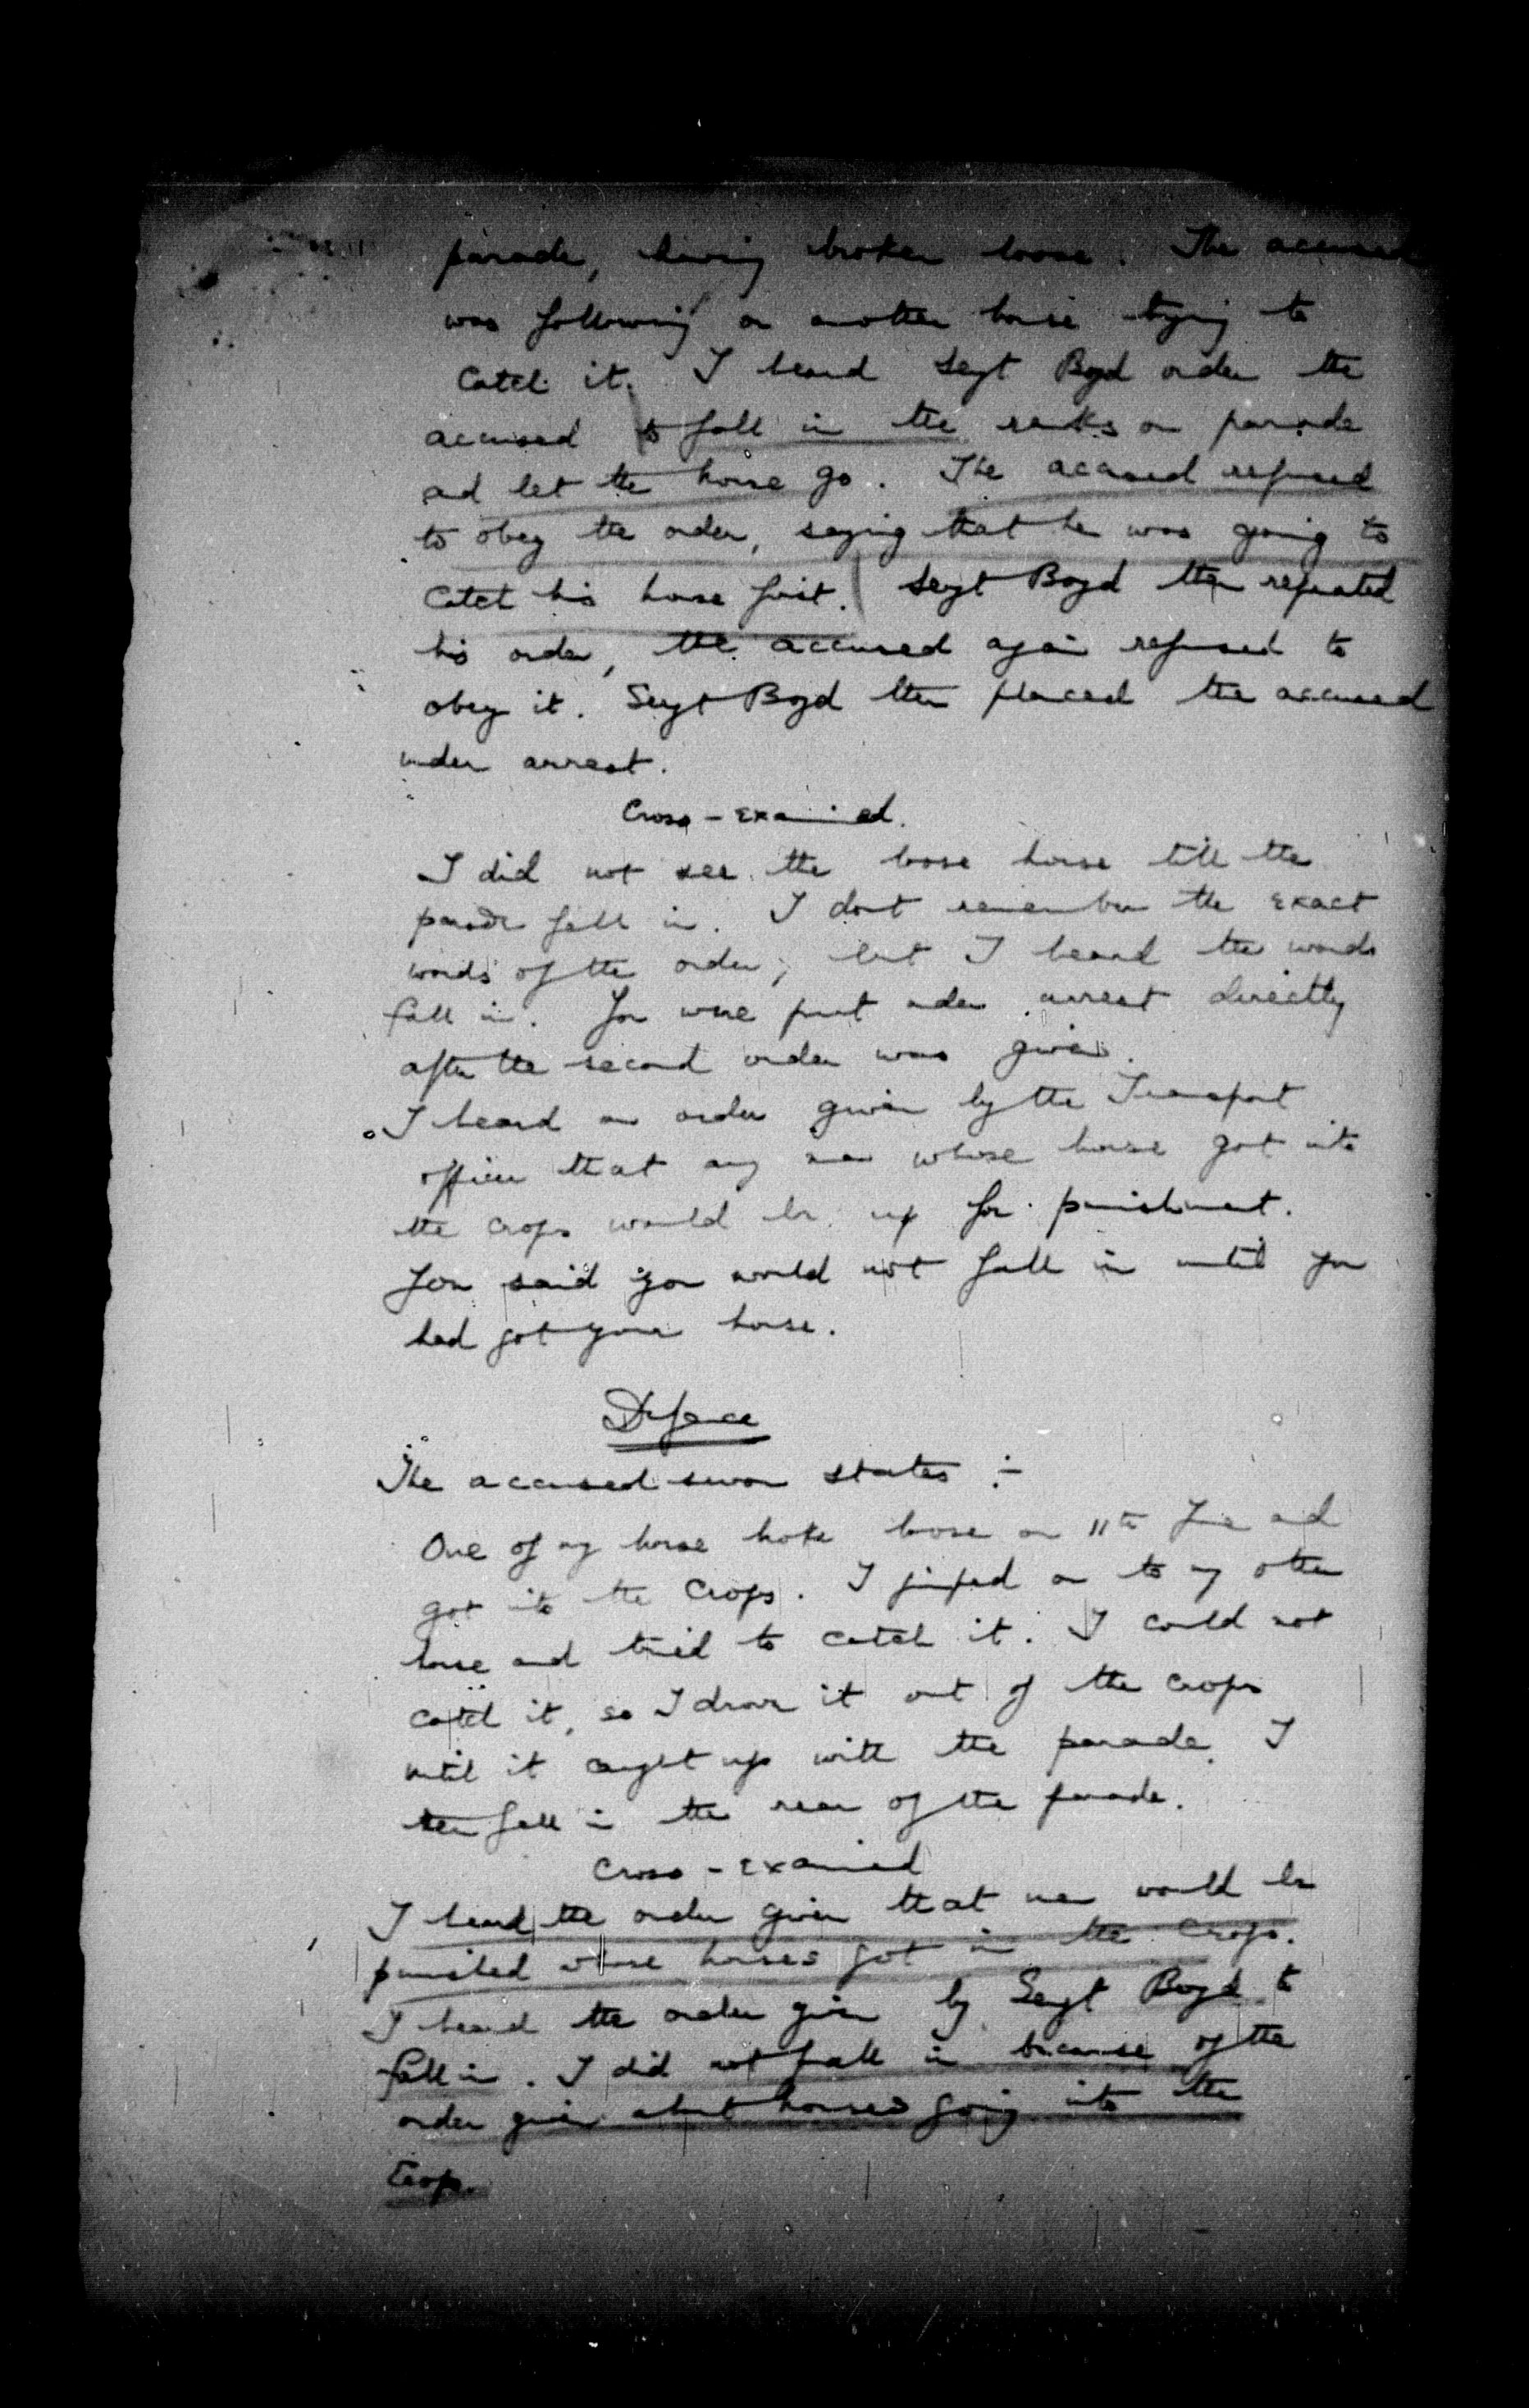 parade, having broken loose. The accused
was following on another horse trying to
catch it. I heard Sergt Boyd order the
accused to fall in the ranks on parade
and let the horse go. The accused refused
to obey the order, saying that he was going to
catch his horse first. Sergt Boyd then repeated
his order, the accused again refused to
obey it. Sergt Boyd then placed the accused
under arrest.
Cross-examined.
I did not see the loose horse till the
parade fell in. I dont remember the exact
words of the order, but I heard the words
fall in. You were put under arrest directly
after the second order was given.
I heard an order given by the Transport
officer that any man whose horse got into
the crops would be up for punishment.
You said you would not fall in until you
had got your horse.
Defence
The accused sworn states :-
One of my horse broke loose on 11th June and
got into the crops. I jumped on to my other
horse and tried to catch it. I could not
catch it, so I drove it out of the crops
until it caught up with the parade. I
then fell in the rear of the parade.
Cross-examined
I heard the order given that men would be
punished whose horses got in the crops.
I heard the order given by Sergt Boyd to
fall in. I did not fall in because of the
order given about horses going into the
Crops.